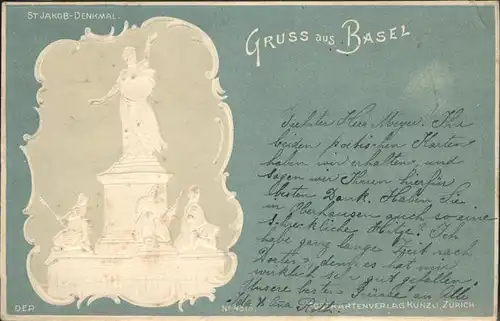 ST JAKOB-DENKMAL.
GRUSS aus BASEL
Liebster Herr Meyer. Ihr
beiden poetischen Karten
haben wir erhalten, und
sagen wir Ihnen hierfür
besten Dank. Haben Sie
in Oberhausen auch so eine
schreckliche Hitze. Ich
habe ganz lange Zeit nach
denn es hat mir
wirklich so gut gefallen.
Unsere besten Grüsse an Alle
Ida & Ena
D.E.P.
No 4518 POSTKARTENVERLAG KÜNZLI, ZÜRICH